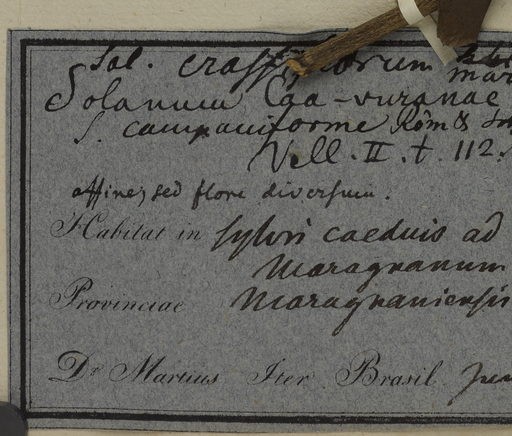 Sol. crassiflorum
mar
Solanum Caa-vuranae
S. campaniforme Röm &
Vell. II. t. 112.
affine, sed flore diversum.
Habitat in sylvis caeduis ad
Maragnanum
Provinciae Maragnaniensis
Dr Martius Iter Brasil